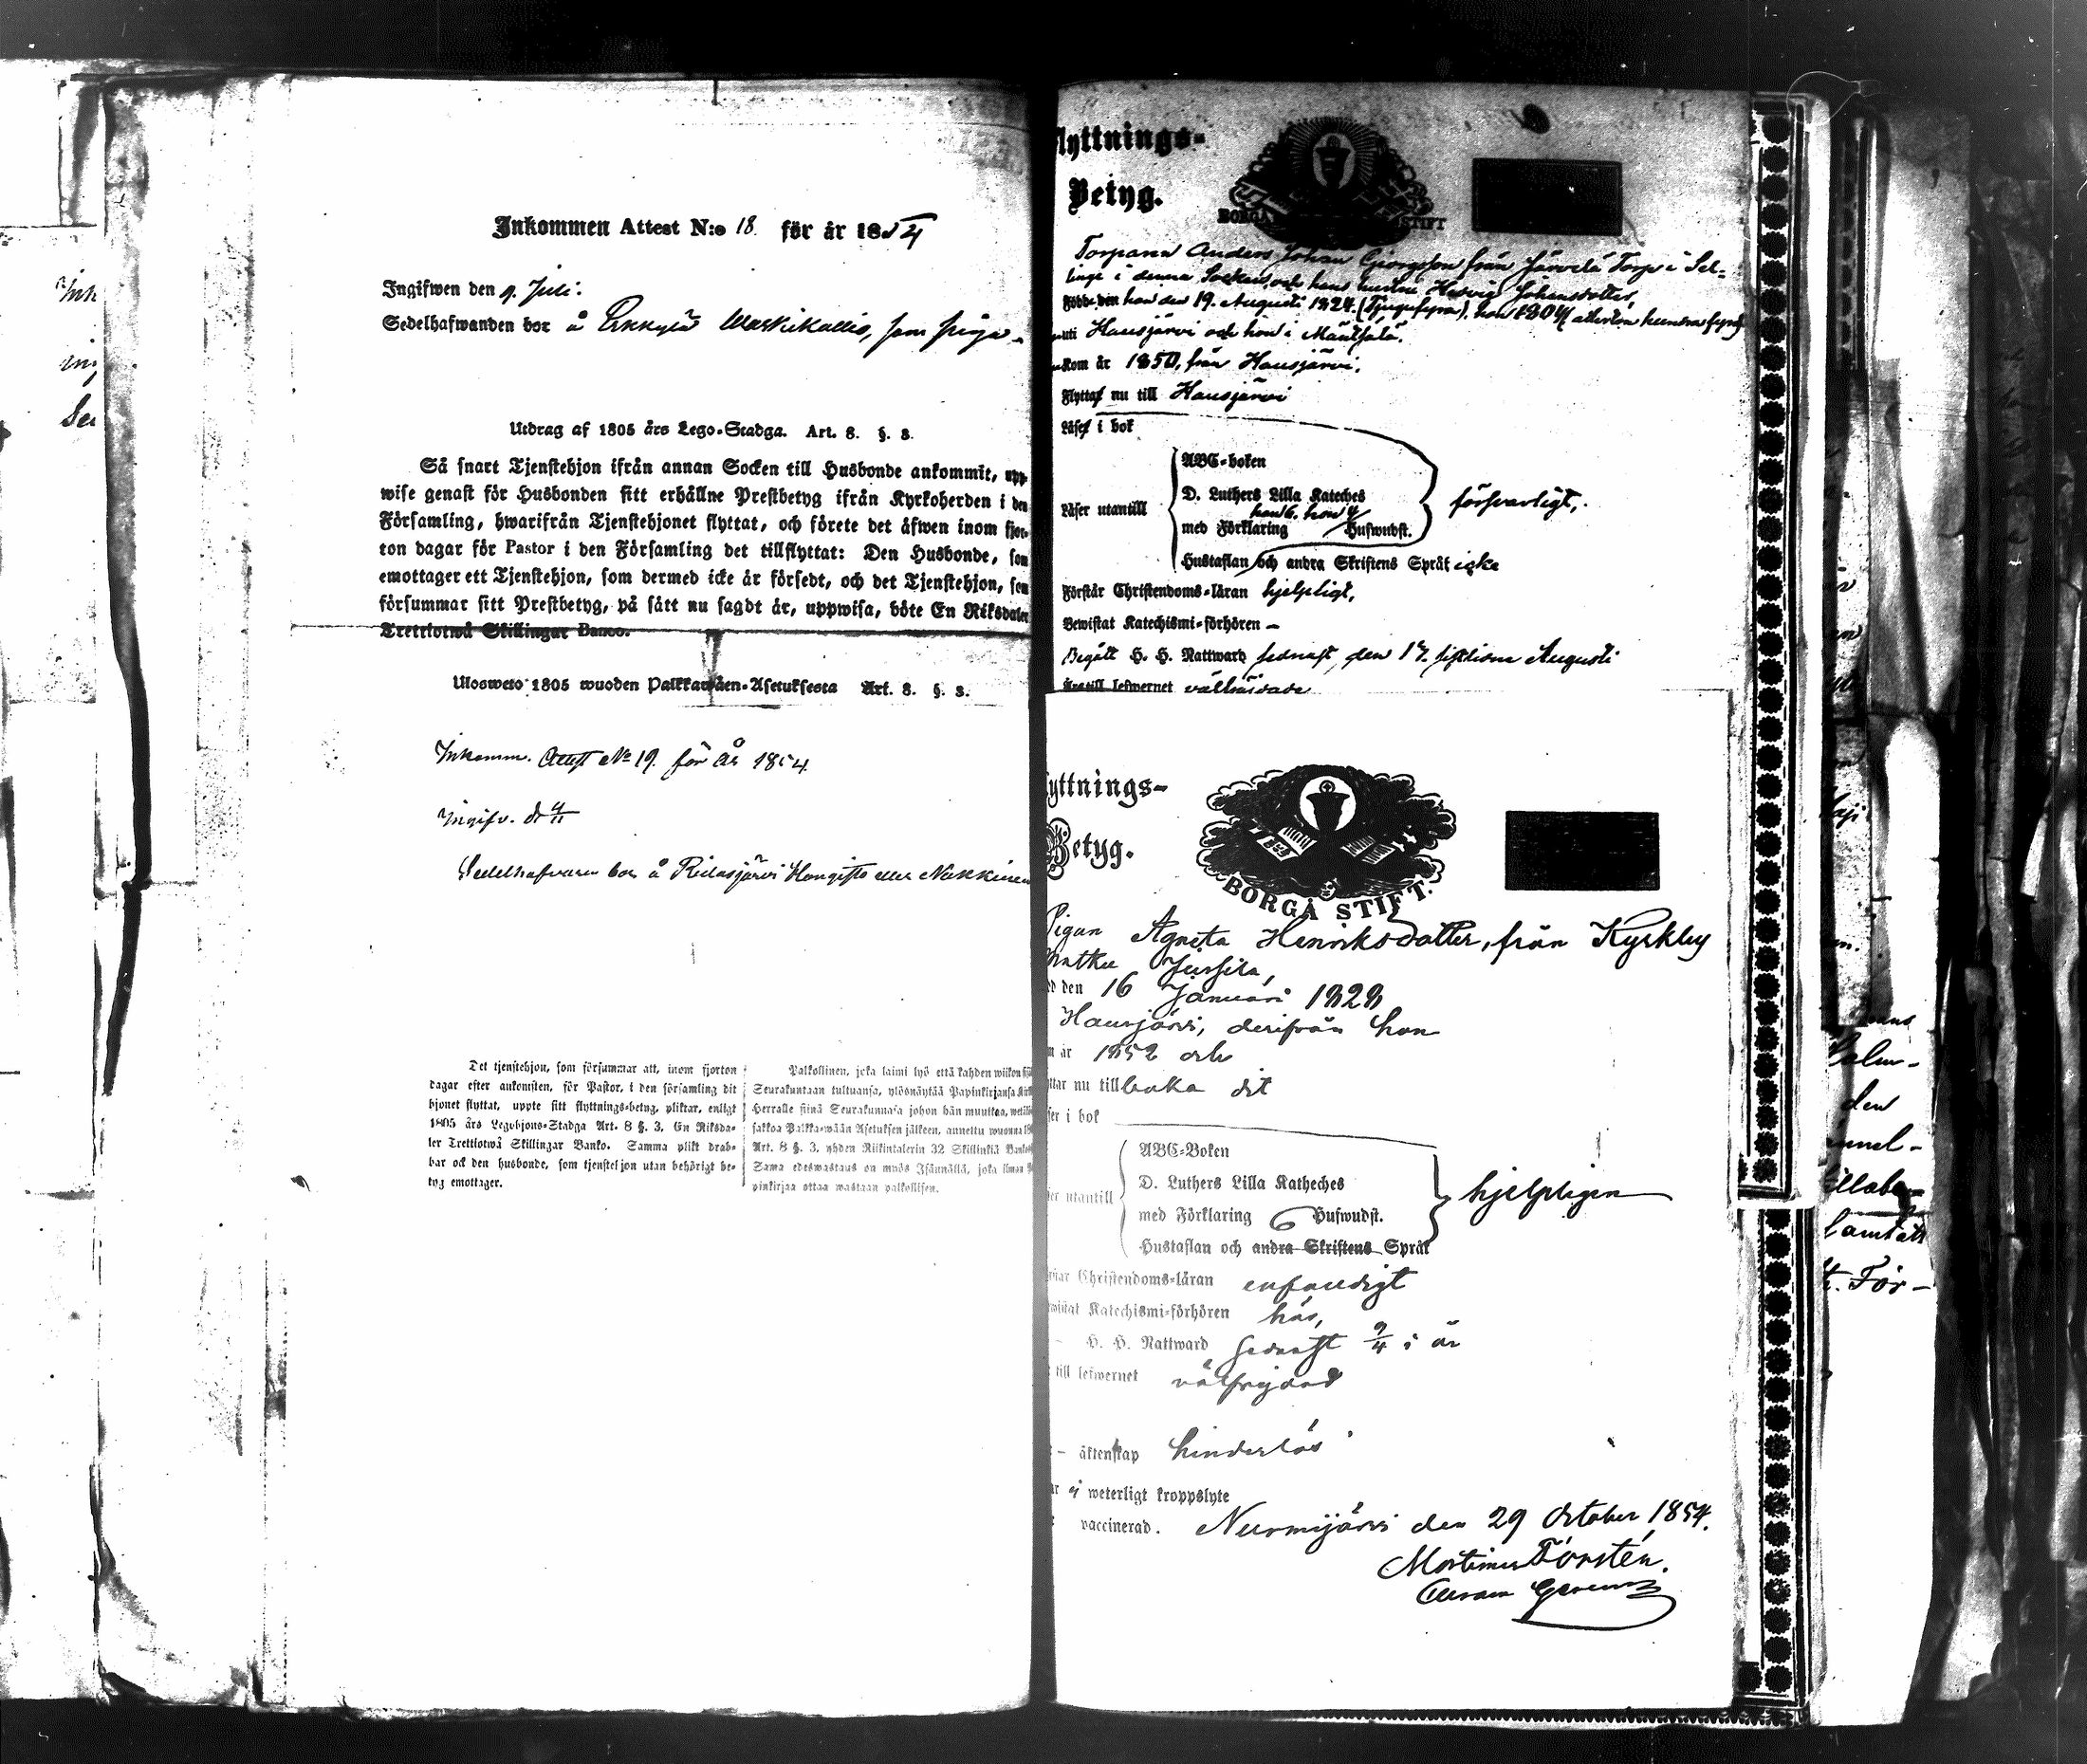 Inkommen Attest N:o 18. för år 1854
Ingifwen den 9. Juli.
Sedelhafwanden bor å Erkylä Waskikallio, som piga
Utdrag af 1805 års Lego-Stadga. Art. 8. §. 3.
Så snart Tjenstehjon ifrån annan Socken till Husbonde ankommit, upp-
wise genast för Husbonden sitt erhållne Prestbetyg ifrån Kyrkoherden i den
Församling, hwarifrån Tjenstehjonet flyttat, och förete det äfwen inom fjor-
ton dagar för Pastor i den Församling det tillflyttat: Den Husbonde, som
emottager ett Tjenstehjon, som dermed icke är försedt, och det Tjenstehjon, som
försummar sitt Prestbetyg, på sätt nu sagdt är, uppwisa, böte En Riksdaler
Trettiotwå Skillingar Banco.
Ulosweto 1805 wuoden Palkkawäen-Asetuksesta Art. 8. §. 3.
Inkomm. Attest No 19. för år 1854
Ingifv. d. 4/11
Sedelhafvaren bor å Ridasjärvi Hongisto eller Nakkinen
Det tjenstehjon, som försummar att, inom fjorton
dagar efter ankomsten, för Pastor, i den församling dit
hjonet flyttat, uppte sitt flyttnings-betyg, pliktar, enligt
1805 års Legohjons-Stadga Art. 8 §. 3, En Riksda-
ler Trettiotwå Skillingar Banko. Samma plikt drab-
bar ock den husbonde, som tjenstehjon utan behörigt be-
tyg emottager.
Palkollinen, joka laimi lyö että kahden wiikon
Seurakuntaan tultuansa, ylösnäyttää Papinkirjansa
Herralle siinä Seurakunnasa johon hän muuttaa,
sakkoa Palkka-wään Asetuksen jälkeen, annettu wuonna
Art. 8 §. 3, yhden Riikintalerin 32 Skillinkiä Banko
Sama edeswastaus on myös Isännällä, joka ilman
pinkirjaa ottaa wastaan palkollisen.
Flyttnings-
Betyg.
BORGÅ STIFT
Torparn Anders Johan Georgsson från Järvelä Torp i Sel-
linge i denna Socken, och hans hustru Hedvig Johansdotter,
Födde den han den 19. Augusti 1824. (Tjugufyra), hon 1804 (aderton hundra fyra)
uti Hausjärvi och hon i Mäntsälä.
kom år 1850, från Hausjärvi.
Flytta nu till Hausjärvi
Läse i bok
ABC-boken
D. Luthers Lilla Kateches
Läser utantill han 6. hon 4 försvarligt,
med Förklaring Hufwudst.
Hustaflan och andra Skriftens Språk icke
Förstår Christendoms-läran hjelpligt,
Bewistat Katechismi-förhören –
Begått H. H. Nattward sednast, den 17. sistlidne Augusti
Äro till lefwernet
yttnings-
Betyg.
BORGÅ STIFT.
Pigan Agneta Henriksdotter, från Kyrkby
Mutku Jussila,
den 16 Januari 1828
Hausjärvi, derifrån hon
år 1852 och
nu tillbaka dit
i bok
ABC-Boken
D. Luthers Lilla Katheches
utantill hjelpligen
med Förklaring 6 Hufwudst.
Hustaflan och andra Skriftens Språk
Christendoms-läran enfaldigt
Katechismi-förhören här,
– H. H. Nattward sednast 9/4 i år
till lefwernet välfrejdad
– äktenskap hinderlös
ej weterligt kroppslyte
vaccinerad. Nurmijärvi den 29 October 1854.
Mortimer Forstén.